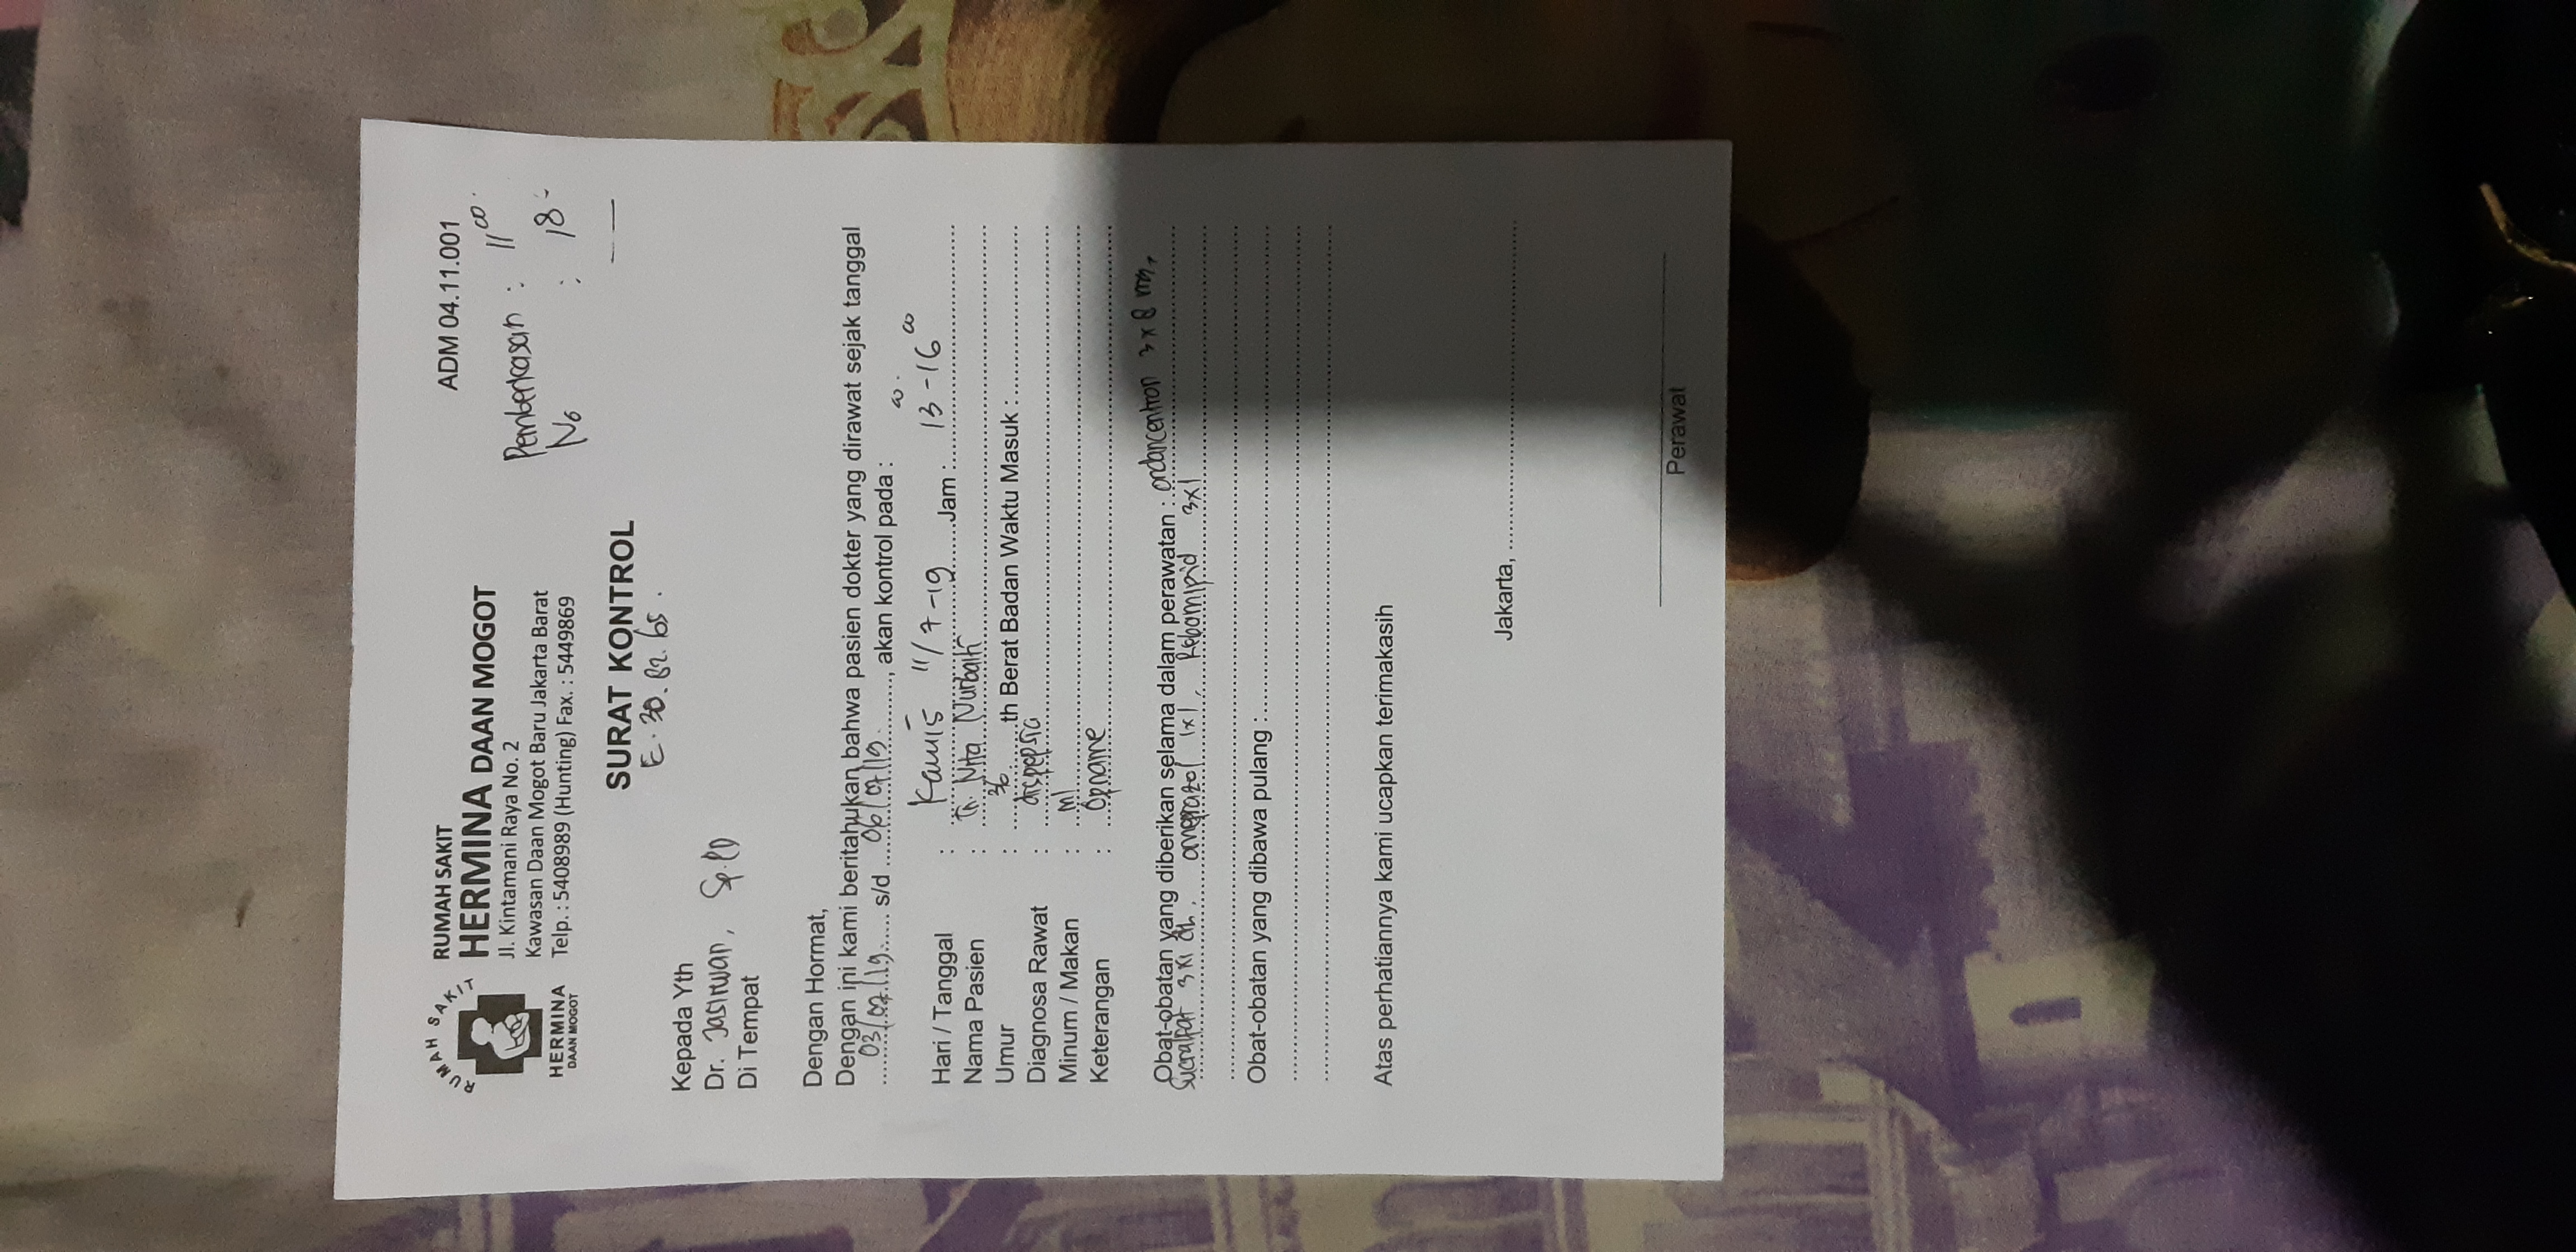 RUMAH SAKIT
HERMINA
DAAN MOGOT
RUMAH SAKIT
HERMINA DAAN MOGOT
Jl. Kintamani Raya No. 2
Kawasan Daan Mogot Baru Jakarta Barat
Telp. : 5408989 (Hunting) Fax. : 5449869
ADM 04.11.001
Pemberkasan : 11 00
No : 18
SURAT KONTROL
E. 30. 82. 65.
Kepada Yth
Dr. Jasirwan, Sp.PD
Di Tempat
Dengan Hormat,
Dengan ini kami beritahukan bahwa pasien dokter yang dirawat sejak tanggal
03/07/19 s/d 06/07/19, akan kontrol pada :
Hari / Tanggal : Kamis 11/7-19 Jam : 13 00 - 16 00
Nama Pasien : Nita Nurbaiti
Umur : 36 th Berat Badan Waktu Masuk :
Diagnosa Rawat : dispepsia
Minum / Makan : ml
Keterangan : Opname
Obat-obatan yang diberikan selama dalam perawatan : ondancentron 3 x 8 mg,
Sucralfat 3x1 cth. omeprazol 1x1, Rebamipid 3x1
Obat-obatan yang dibawa pulang :
Atas perhatiannya kami ucapkan terimakasih
Jakarta,
Perawat